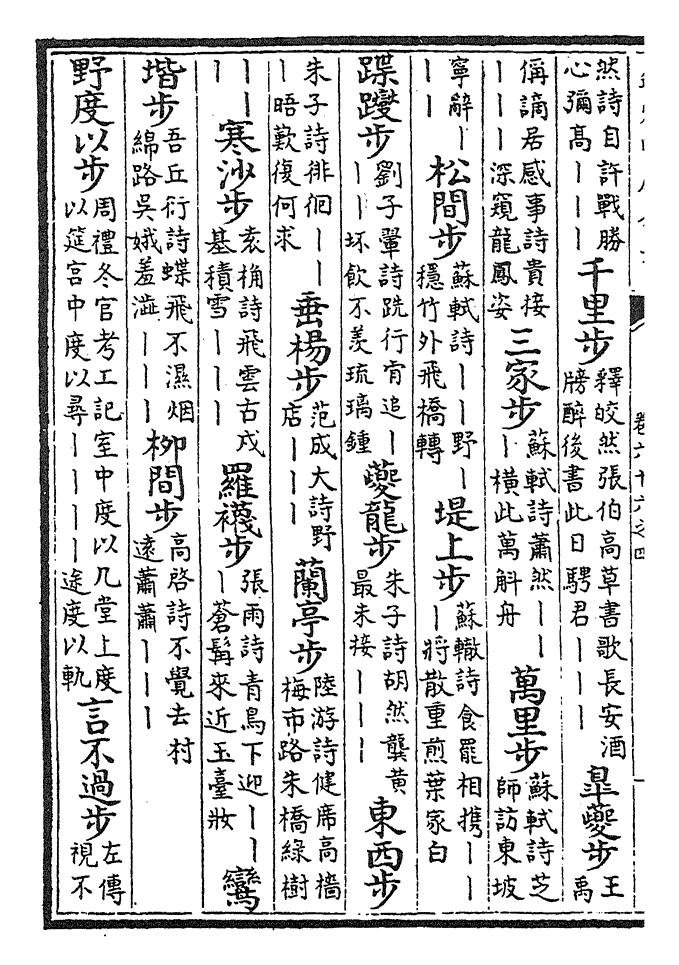 卷六十六之四
然詩自許戰勝心彌高｜｜｜千里步釋皎然張伯高草書歌長安酒牓醉後書此日騁君｜｜｜皐夔步王禹
偁謫居感事詩貴接｜｜｜深窺龍鳳姿三家步蘇軾詩蕭然｜｜｜橫此萬斛舟萬里步蘇軾詩芝師訪東坡
寧辭｜｜｜松間步蘇軾詩｜｜野｜穩竹外飛橋轉堤上步蘇轍詩食罷相携｜｜｜將散重煎葉家白
蹀躞步劉子翬詩跣行宵追｜｜｜坏飲不羨琉璃鍾夔龍步朱子詩胡然龔黄最未接｜｜｜東西步
朱子詩徘徊｜｜｜晤歎復何求垂楊步范成大詩野店｜｜｜蘭亭步陸游詩健席高檣梅市路朱橋綠樹
｜｜｜寒沙步袁桷詩飛雲古戍基積雪｜｜｜羅襪步張雨詩青鳥下迎｜｜｜蒼髯來近玉臺妝鸞
堦步吾丘衍詩蝶飛不濕烟綿路吳娥羞澁｜｜｜柳間步高啓詩不覺去村遠蕭蕭｜｜｜
野度以步周禮冬官考工記室中度以几堂上度以筵宫中度以尋｜｜｜｜途度以軌言不過步左傳視不